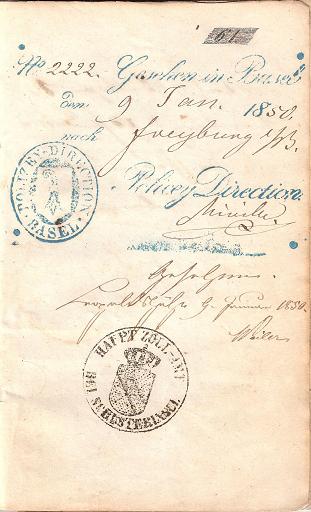 61
No. 2222. Gesehen in Basel
Den 9 Jan. 1850.
nach Freyburg i/B.
Polizey Direction.
POLIZEY-DIRECTION
BASEL
Gesehen.
9. Januar 1850.
HAUPT ZOLL-AMT
BEI SCHUSTERINSEL